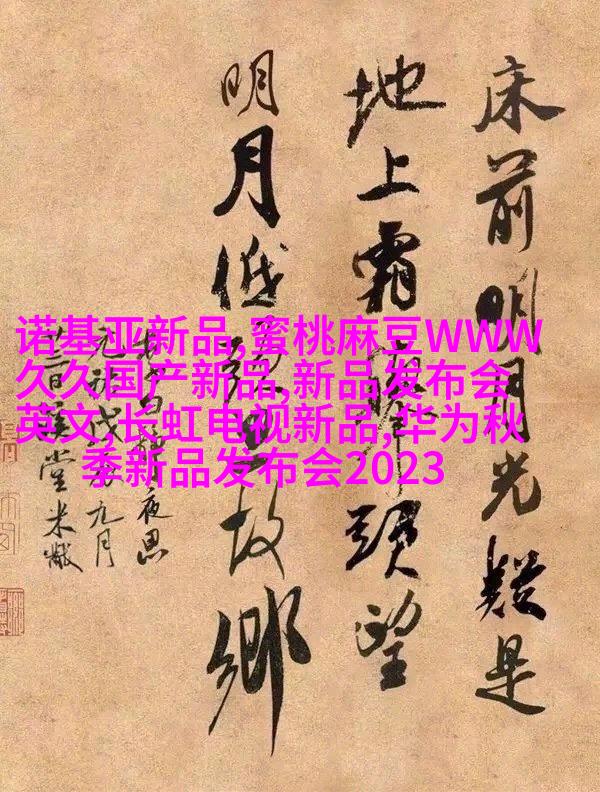 床前明月光疑是
地上霜舉頭望
明月低頭思故鄉
夜思
元祐戊辰九月
溪堂米黻
诺基亚新品,蜜桃麻豆WWW
久久国产新品,新品发布会
英文,长虹电视新品,华为秋
季新品发布会2023